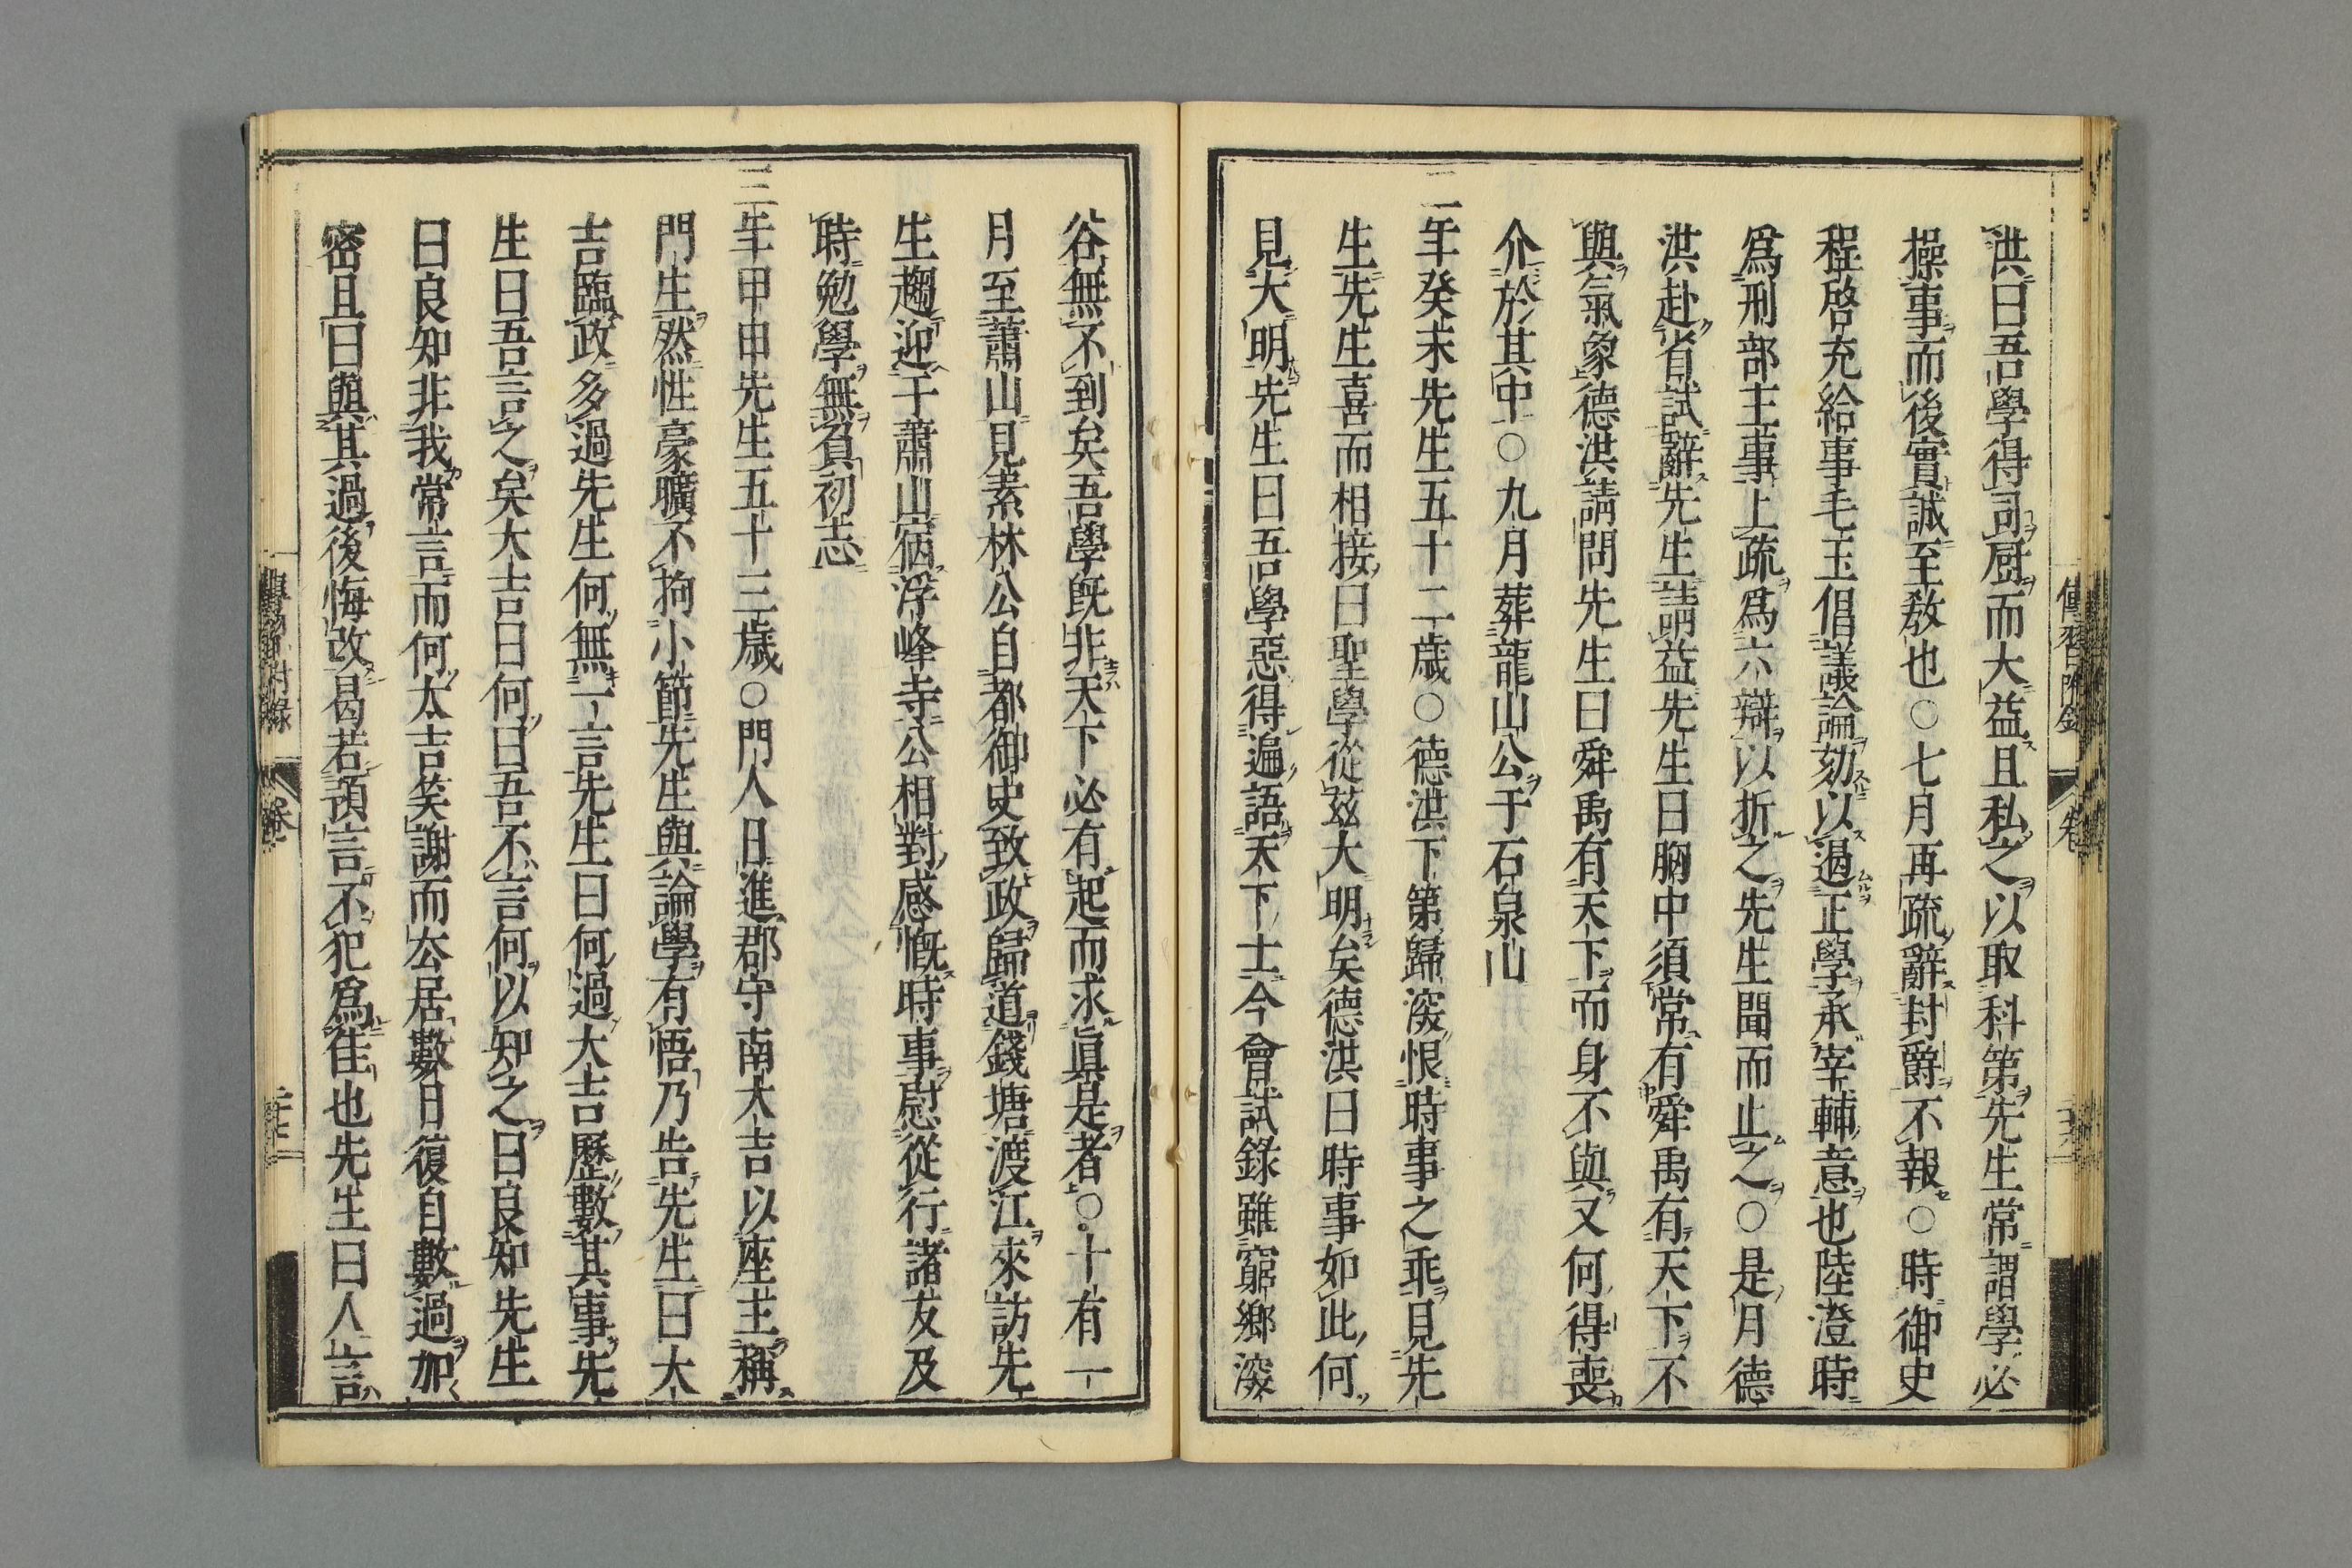 洪曰吾學得司厨而大益且私之以取科第先生常謂學必
操事而後實誠至教也○七月再疏辭封爵不報○時御史
程啓充給事毛玉倡議論劾以遏正學承宰輔意也陸澄時
爲刑部主事上疏爲六辯以折之先生聞而止之○是月德
洪赴省試辭先生請益先生曰胸中須常有舜禹有天下不
與氣象德洪請問先生曰舜禹有天下而身不與又何得喪
介於其中○九月葬龍山公于石泉山
二年癸未先生五十二歲○德洪下第歸深恨時事之乖見先
生先生喜而相接曰聖學從茲大明矣德洪曰時事如此何
見大明先生曰吾學惡得遍語天下士今會試錄雖窮鄉深
谷無不到矣吾學旣非天下必有起而求眞是者○十有一
月至蕭山見素林公自都御史致政歸道錢塘渡江來訪先
生趨迎于蕭山宿浮峰寺公相對感慨時事慰從行諸友及
時勉學無負初志
三年甲申先生五十三歲○門人日進郡守南大吉以座主稱
門生然性豪曠不拘小節先生與論學有悟乃告先生曰大
吉臨政多過先生何無一言先生曰何過大吉歷數其事先
生曰吾言之矣大吉曰何曰吾不言何以知之曰良知先生
曰良知非我常言而何大吉笑謝而去居數日復自數過加
密且曰與其過後悔改曷若預言不犯爲佳也先生曰人言
傳習附錄 卷
傳習附錄 卷